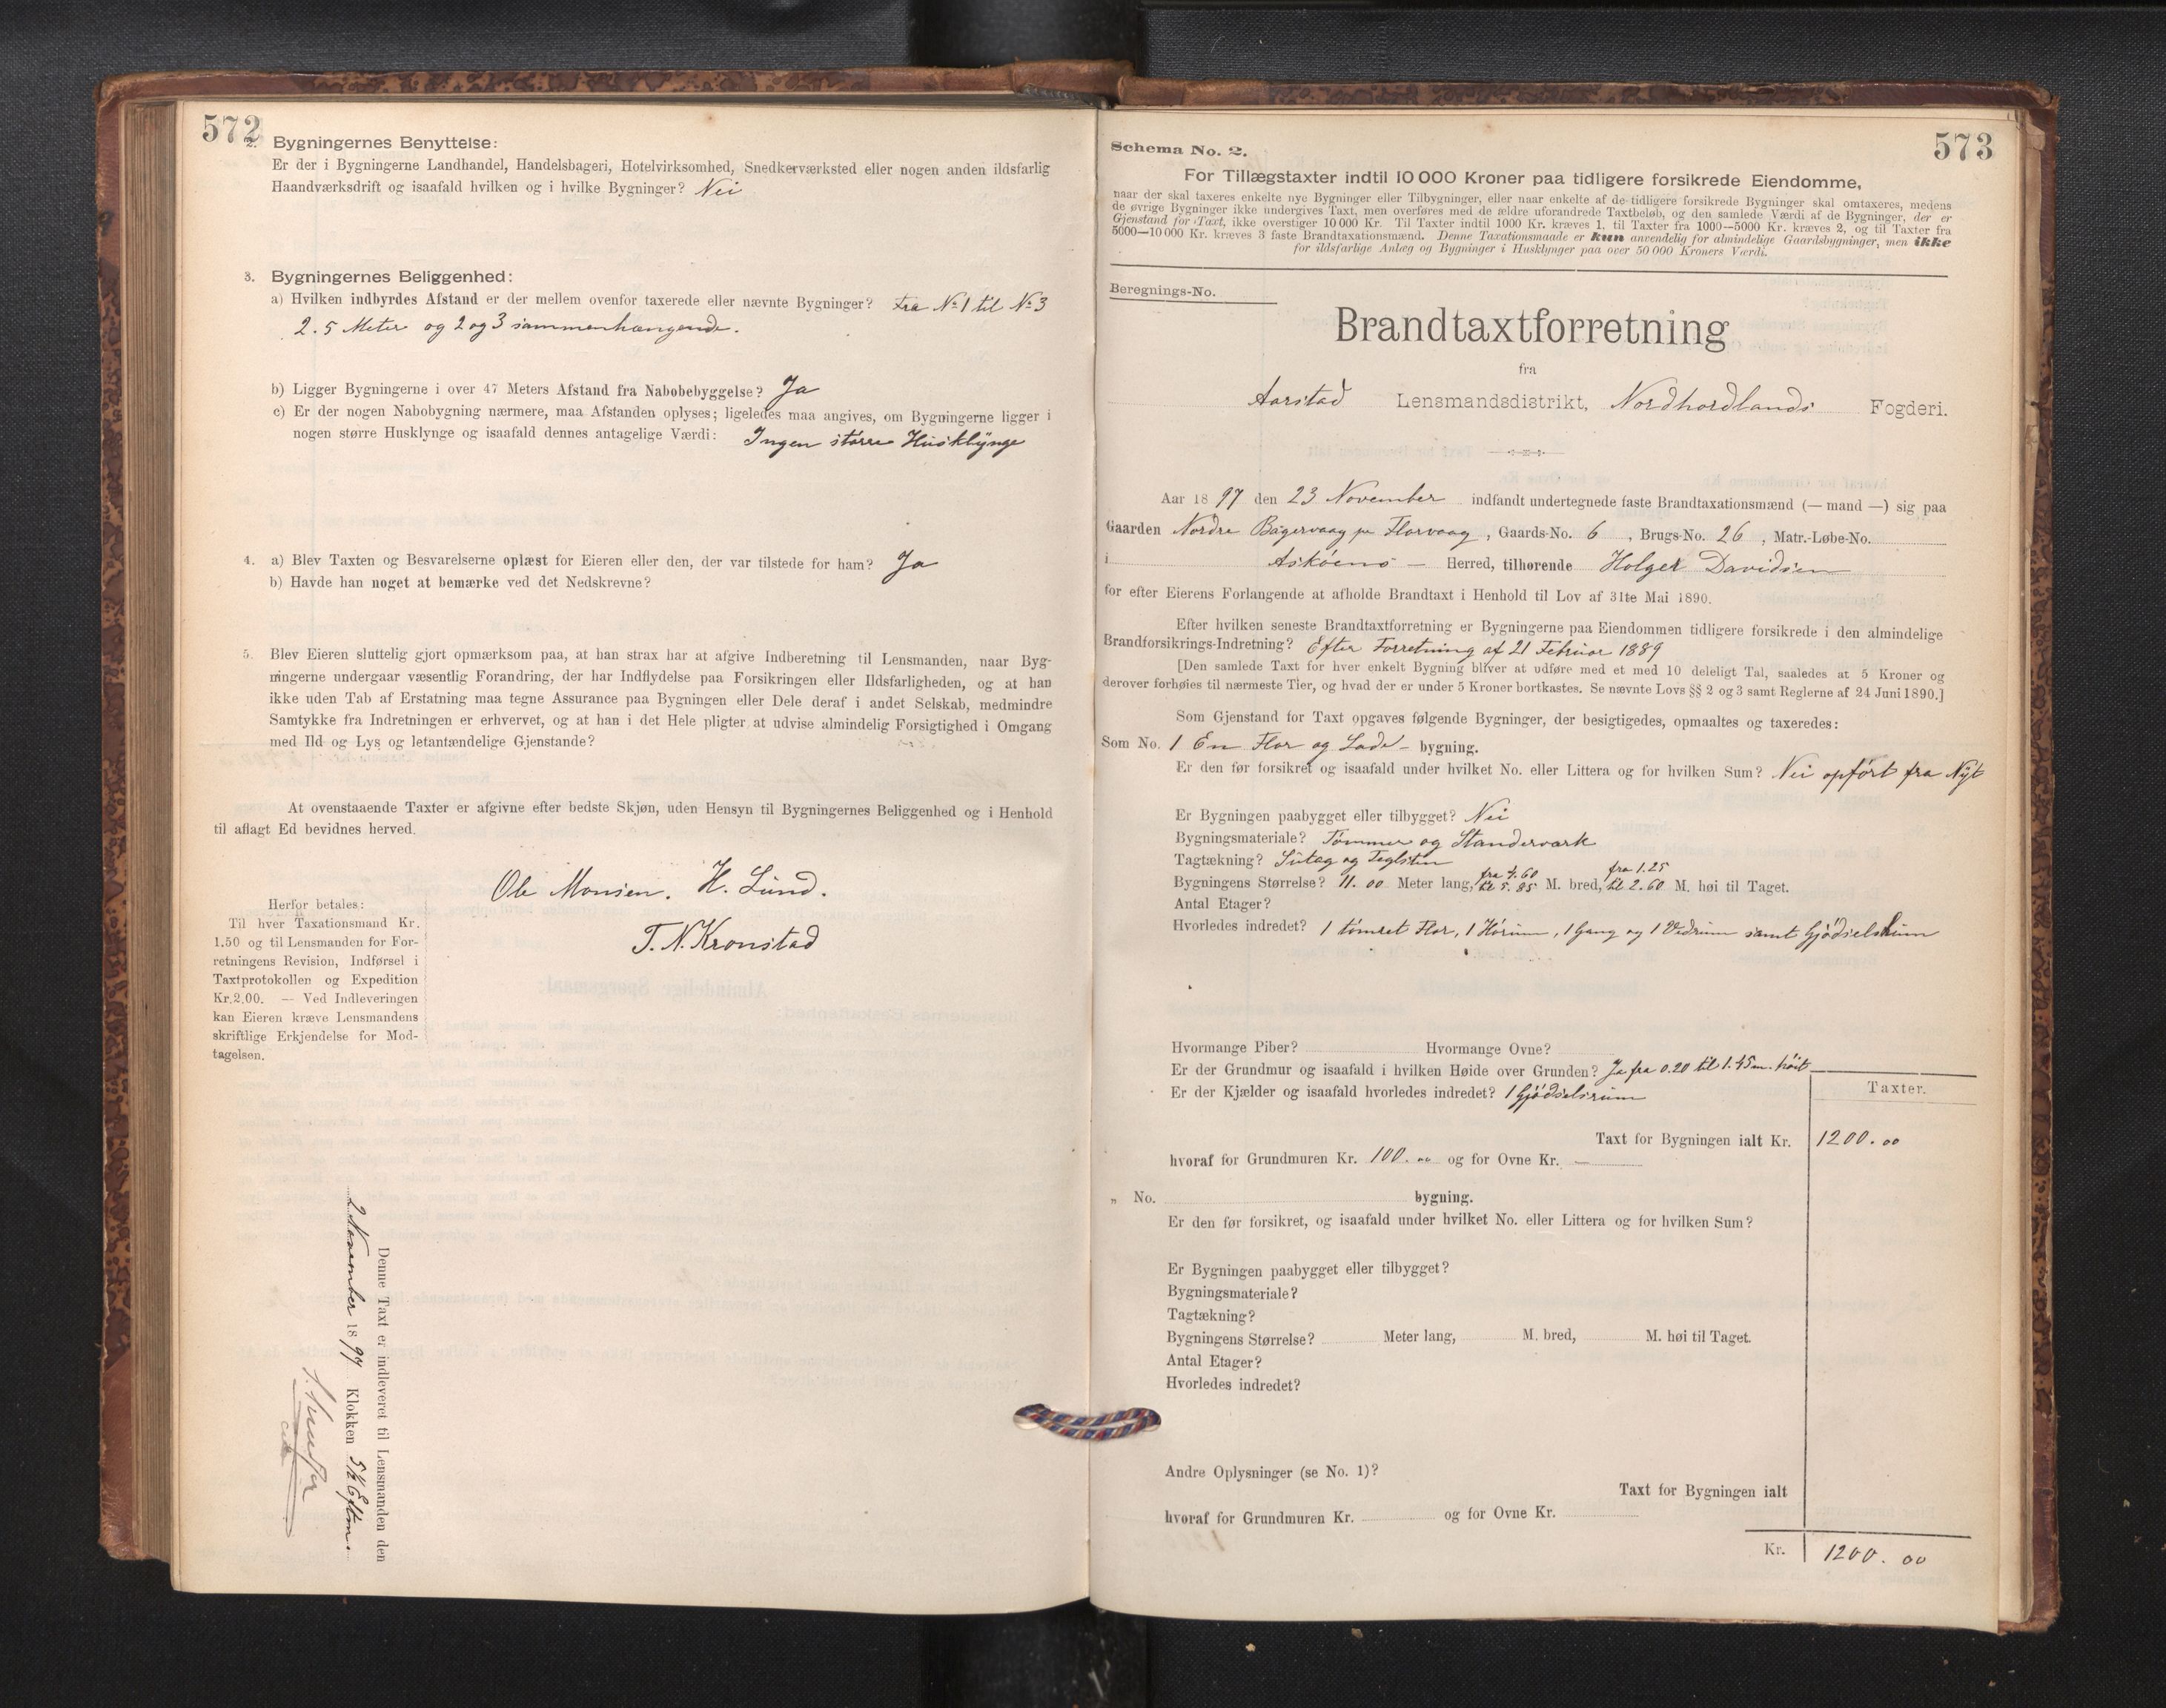 572
2. Bygningernes Benyttelse:
Er der i Bygningerne Landhandel, Handelsbageri, Hotelvirksomhed, Snedkerværksted eller nogen anden ildsfarlig
Haandværksdrift og isaafald hvilken og i hvilke Bygninger? Nei
3. Bygningernes Beliggenhed:
a) Hvilken indbyrdes Afstand er der mellem ovenfor taxerede eller nævnte Bygninger? fra No 1 til No 3
2.5 Meter og 2 og 3 sammenhængende.
b) Ligger Bygningerne i over 47 Meters Afstand fra Nabobebyggelse? Ja
c) Er der nogen Nabobygning nærmere, maa Afstanden oplyses; ligeledes maa angives, om Bygningerne ligger i
nogen større Husklynge og isaafald dennes antagelige Værdi: Ingen større Husklynge
4. a) Blev Taxten og Besvarelserne oplæst for Eieren eller den, der var tilstede for ham? Ja
b) Havde han noget at bemærke ved det Nedskrevne?
5. Blev Eieren sluttelig gjort opmærksom paa, at han strax har at afgive Indberetning til Lensmanden, naar Byg-
ningerne undergaar væsentlig Forandring, der har Indflydelse paa Forsikringen eller Ildsfarligheden, og at han
ikke uden Tab af Erstatning maa tegne Assurance paa Bygningen eller Dele deraf i andet Selskab, medmindre
Samtykke fra Indretningen er erhvervet, og at han i det Hele pligter at udvise almindelig Forsigtighed i Omgang
med Ild og Lys og letantændelige Gjenstande?
At ovenstaaende Taxter er afgivne efter bedste Skjøn, uden Hensyn til Bygningernes Beliggenhed og i Henhold
til aflagt Ed bevidnes herved.
Ole Monsen. H. Lund.
T. N. Kronstad
Herfor betales:
Til hver Taxationsmand Kr.
1.50 og til Lensmanden for For-
retningens Revision, Indførsel i
Taxtprotokollen og Expedition
Kr. 2.00. — Ved Indleveringen
kan Eieren kræve Lensmandens
skriftlige Erkjendelse for Mod-
tagelsen.
Denne Taxt er indleveret til Lensmanden den
2 November 1897 Klokken 5½ Eftm.
573
Schema No. 2.
For Tillægstaxter indtil 10 000 Kroner paa tidligere forsikrede Eiendomme,
naar der skal taxeres enkelte nye Bygninger eller Tilbygninger, eller naar enkelte af de tidligere forsikrede Bygninger skal omtaxeres, medens
de øvrige Bygninger ikke undergives Taxt, men overføres med de ældre uforandrede Taxtbeløb, og den samlede Værdi af de Bygninger, der er
Gjenstand for Taxt, ikke overstiger 10 000 Kr. Til Taxter indtil 1000 Kr. kræves 1, til Taxter fra 1000—5000 Kr. kræves 2, og til Taxter fra
5000—10 000 Kr. kræves 3 faste Brandtaxationsmænd. Denne Taxationsmaade er kun anvendelig for almindelige Gaardsbygninger, men ikke
for ildsfarlige Anlæg og Bygninger i Husklynger paa over 50 000 Kroners Værdi.
Beregnings-No.
Brandtaxtforretning
fra
Aarstad Lensmandsdistrikt, Nordhordlands Fogderi.
Aar 1897 den 23 November indfandt undertegnede faste Brandtaxationsmænd (— mand —) sig paa
Gaarden Nordre Bagervaag pr Florvaag, Gaards-No. 6, Brugs-No. 26, Matr.-Løbe-No.
i Askøens — Herred, tilhørende Holger Davidsen
for efter Eierens Forlangende at afholde Brandtaxt i Henhold til Lov af 31te Mai 1890.
Efter hvilken seneste Brandtaxtforretning er Bygningerne paa Eiendommen tidligere forsikrede i den almindelige
Brandforsikrings-Indretning? Efter Forretning af 21 Februar 1889
[Den samlede Taxt for hver enkelt Bygning bliver at udføre med et med 10 deleligt Tal, saaledes at 5 Kroner og
derover forhøies til nærmeste Tier, og hvad der er under 5 Kroner bortkastes. Se nævnte Lovs §§ 2 og 3 samt Reglerne af 24 Juni 1890.]
Som Gjenstand for Taxt opgaves følgende Bygninger, der besigtigedes, opmaaltes og taxeredes:
Som No. 1 En Flor og Lade- bygning.
Er den før forsikret og isaafald under hvilket No. eller Littera og for hvilken Sum? Nei opført fra Nyt
Er Bygningen paabygget eller tilbygget? Nei
Bygningsmateriale? Tømmer og Standerværk
Tagtækning? Sutag og Teglsten
fra 4.60 fra 1.25
Bygningens Størrelse? 11.00 Meter lang, til 5.85 M. bred, til 2.60 M. høi til Taget.
Antal Etager?
Hvorledes indredet? 1 tømret Flor, 1 Hørum, 1 Gang og 1 Vedrum samt Gjødselsrum
Hvormange Piber? Hvormange Ovne?
Er der Grundmur og isaafald i hvilken Høide over Grunden? Ja fra 0.20 til 1.45 m. høit
Er der Kjælder og isaafald hvorledes indredet? 1 Gjødselsrum
Taxter.
Taxt for Bygningen ialt Kr. 1200.00
hvoraf for Grundmuren Kr. 100.00 og for Ovne Kr. —
„ No. bygning.
Er den før forsikret, og isaafald under hvilket No. eller Littera og for hvilken Sum?
Er Bygningen paabygget eller tilbygget?
Bygningsmateriale?
Tagtækning?
Bygningens Størrelse? Meter lang, M. bred, M. høi til Taget.
Antal Etager?
Hvorledes indredet?
Andre Oplysninger (se No. 1)?
Taxt for Bygningen ialt
hvoraf for Grundmuren Kr. og for Ovne Kr.
Kr. 1200.00